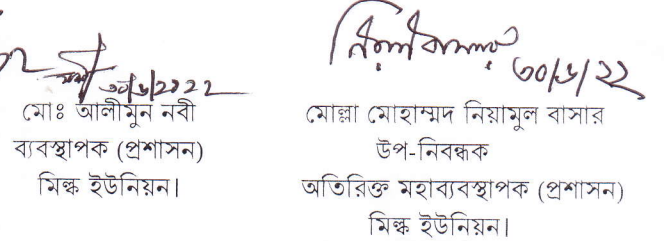 ৩০/৬/২০২২
মোঃ আলীমুন নবী
ব্যবস্থাপক (প্রশাসন)
মিল্ক ইউনিয়ন।
৩০/৬/২২
মোল্লা মোহাম্মদ নিয়ামুল বাসার
উপ-নিবন্ধক
অতিরিক্ত মহাব্যবস্থাপক (প্রশাসন)
মিল্ক ইউনিয়ন।